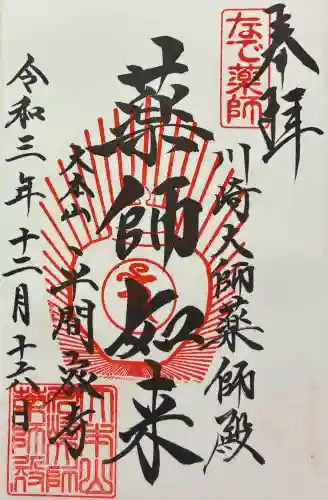 奉拝
なで薬師
川崎大師薬師殿
薬師如来
大本山
平間寺
令和三年十二月十六日